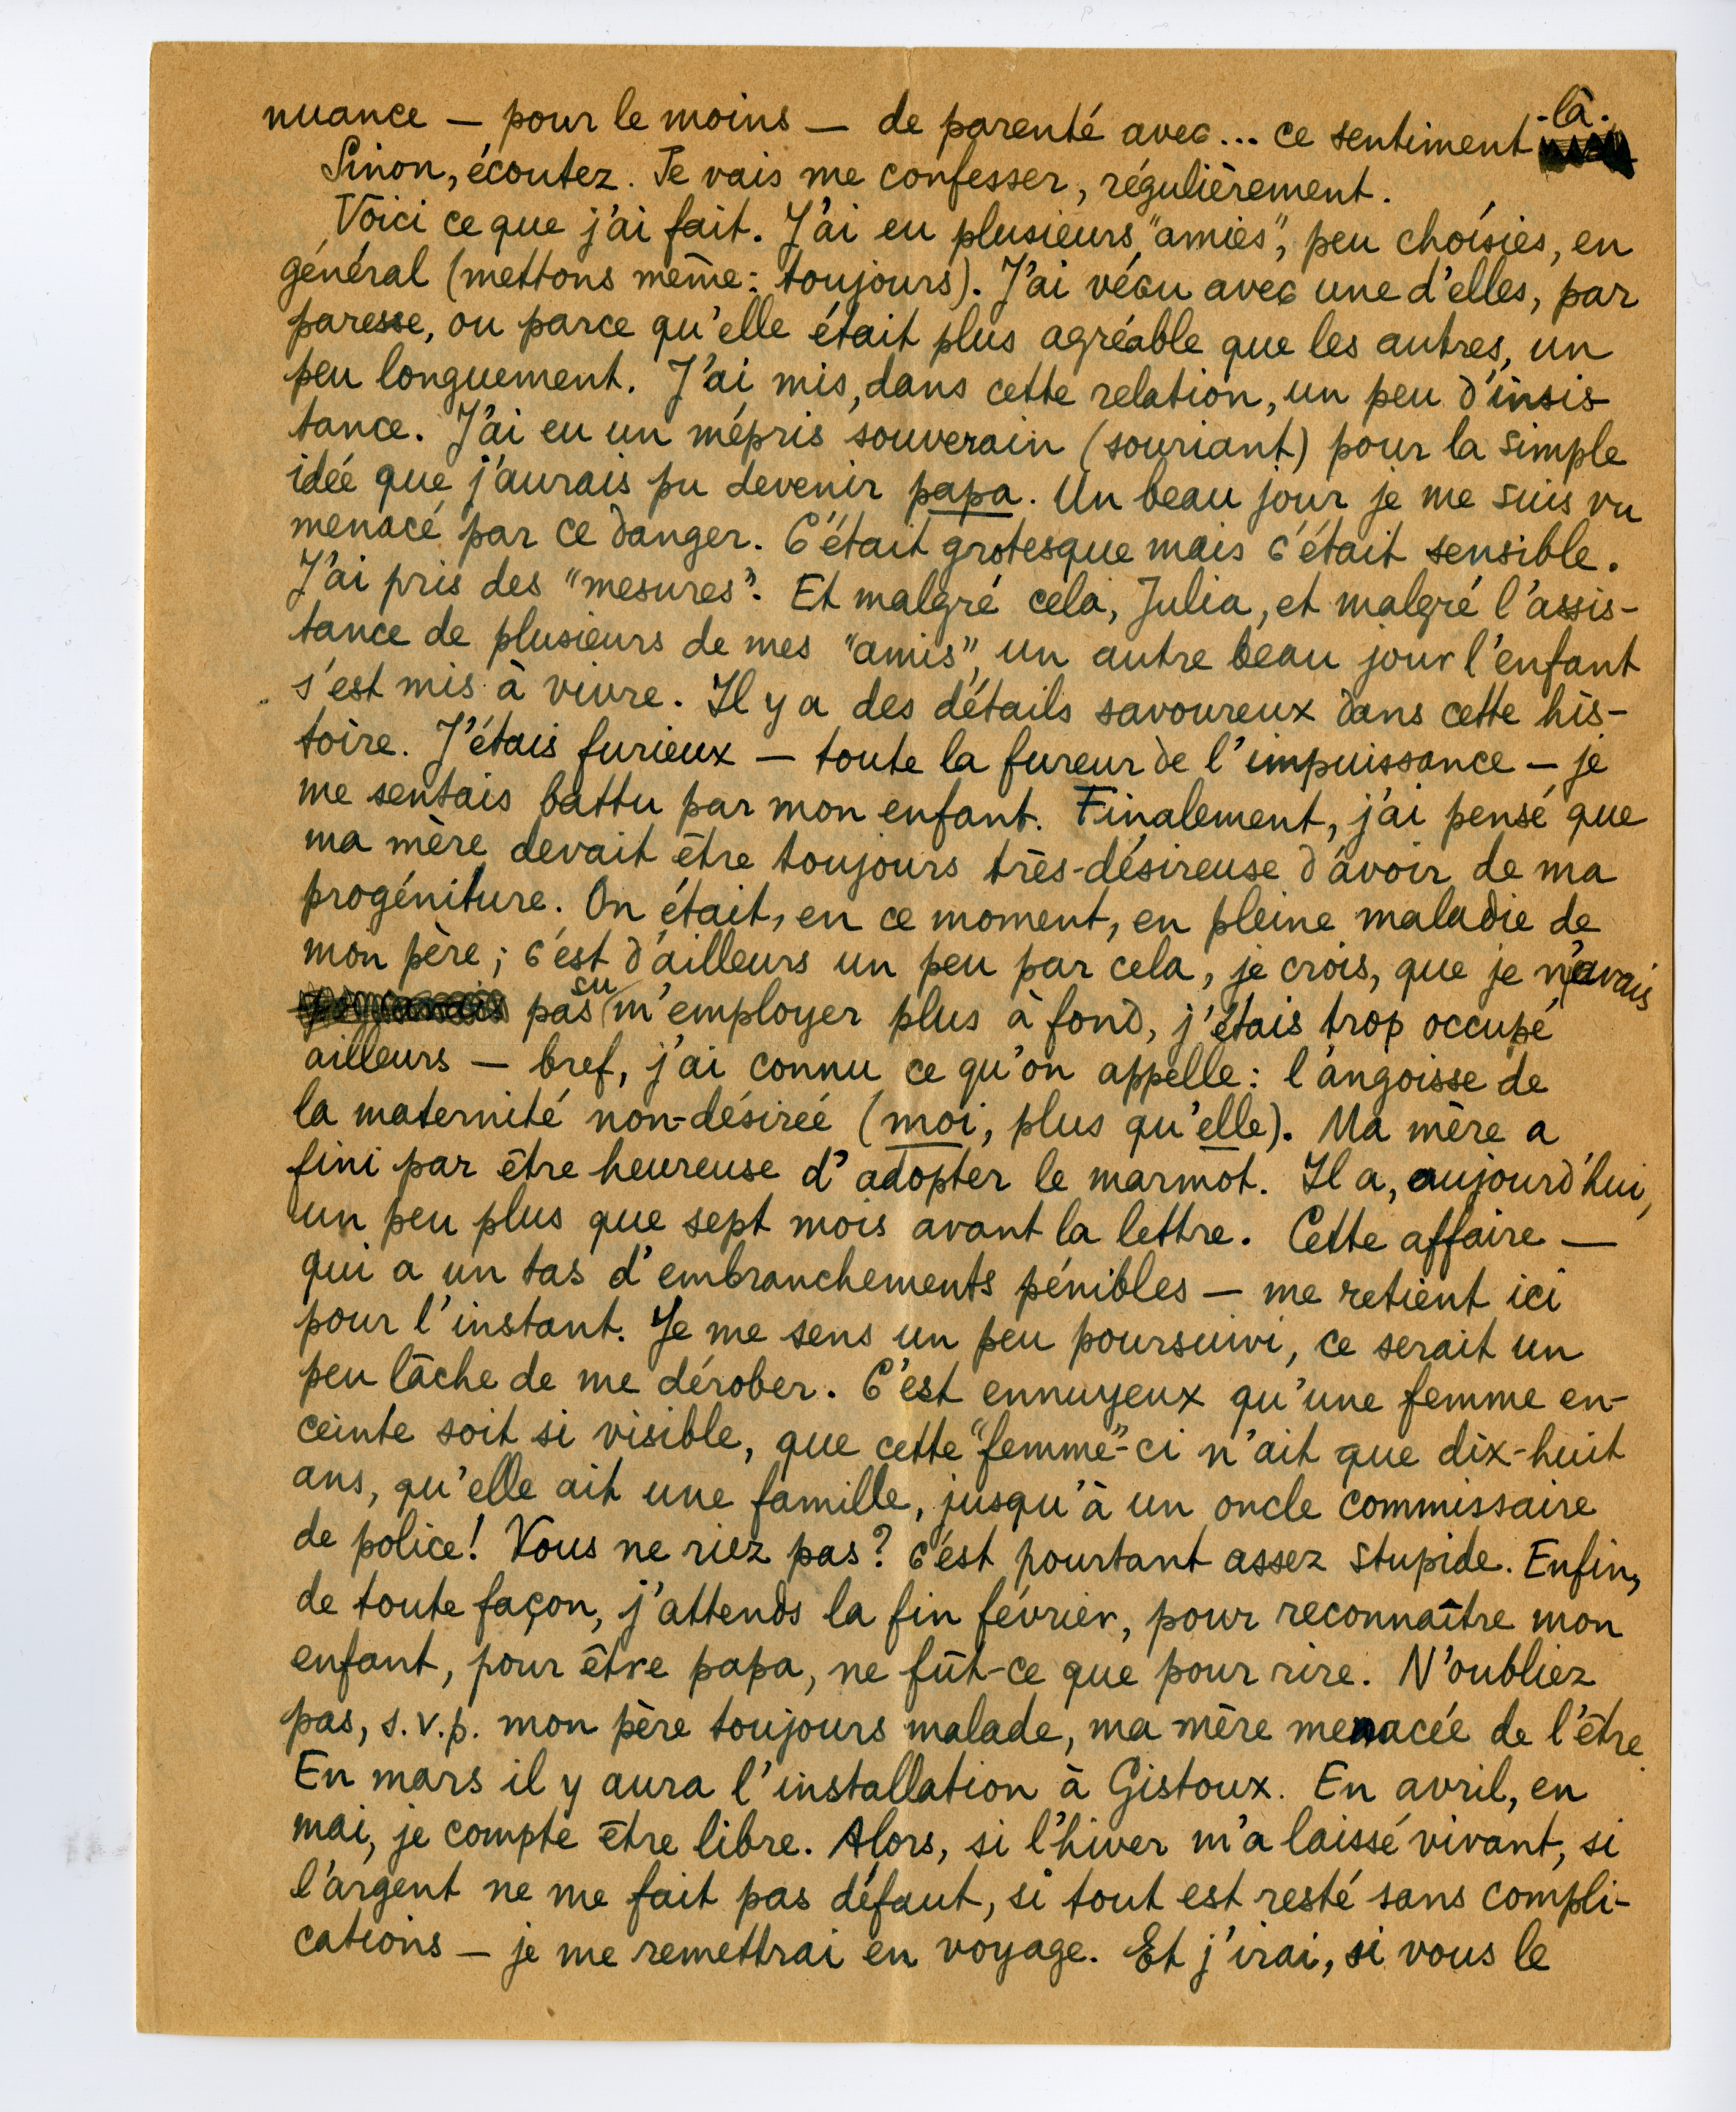 nuance — pour le moins — de parenté avec... ce sentiment-là.
Sinon, écoutez. Je vais me confesser, régulièrement.
Voici ce que j'ai fait. J'ai eu plusieurs "amies", peu choisies, en
général (mettons même : toujours). J'ai vécu avec une d'elles, par
paresse, ou parce qu'elle était plus agréable que les autres, un
peu longuement. J'ai mis, dans cette relation, un peu d'insis-
tance. J'ai eu un mépris souverain (souriant) pour la simple
idée que j'aurais pu devenir papa. Un beau jour je me suis vu
menacé par ce danger. C'était grotesque mais c'était sensible.
J'ai pris des "mesures". Et malgré cela, Julia, et malgré l'assis-
tance de plusieurs de mes "amis", un autre beau jour l'enfant
s'est mis à vivre. Il y a des détails savoureux dans cette his-
toire. J'étais furieux — toute la fureur de l'impuissance — je
me sentais battu par mon enfant. Finalement, j'ai pensé que
ma mère devait être toujours très-désireuse d'avoir de ma
progéniture. On était, en ce moment, en pleine maladie de
mon père ; c'est d'ailleurs un peu par cela, je crois, que je n'avais
pas su m'employer plus à fond, j'étais trop occupé
ailleurs — bref, j'ai connu ce qu'on appelle : l'angoisse de
la maternité non-désirée (moi, plus qu'elle). Ma mère a
fini par être heureuse d'adopter le marmot. Il a, aujourd'hui,
un peu plus que sept mois avant la lettre. Cette affaire —
qui a un tas d'embranchements pénibles — me retient ici
pour l'instant. Je me sens un peu poursuivi, ce serait un
peu lâche de me dérober. C'est ennuyeux qu'une femme en-
ceinte soit si visible, que cette "femme"-ci n'ait que dix-huit
ans, qu'elle ait une famille, jusqu'à un oncle commissaire
de police ! Vous ne riez pas ? c'est pourtant assez stupide. Enfin,
de toute façon, j'attends la fin février, pour reconnaître mon
enfant, pour être papa, ne fût-ce que pour rire. N'oubliez
pas, s.v.p. mon père toujours malade, ma mère menacée de l'être.
En mars il y aura l'installation à Gistoux. En avril, en
mai, je compte être libre. Alors, si l'hiver m'a laissé vivant, si
l'argent ne me fait pas défaut, si tout est resté sans compli-
cations — je me remettrai en voyage. Et j'irai, si vous le